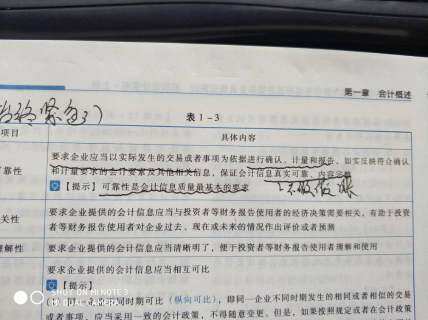 第一章 会计概述
表 1-3
项目 具体内容
要求企业应当以实际发生的交易或者事项为依据进行确认、计量和报告，如实反映符合确认
靠性 和计量要求的会计要素及其他相关信息，保证会计信息真实可靠、内容完整
【提示】可靠性是会计信息质量最基本的要求
关性 要求企业提供的会计信息应当与投资者等财务报告使用者的经济决策需要相关，有助于投资
者等财务报告使用者对企业过去、现在或未来的情况作出评价或者预测
理解性 要求企业提供的会计信息应当清晰明了，便于投资者等财务报告使用者理解和使用
要求企业提供的会计信息应当相互可比
【提示】
同时期可比（纵向可比），即同一企业不同时期发生的相同或者相似的交易
或者事项，应当采用一致的会计政策，不得随意变更。但是，如果按照规定或者在会计政策
SHOT ON MI NOTE 3
MI DUAL CAMERA